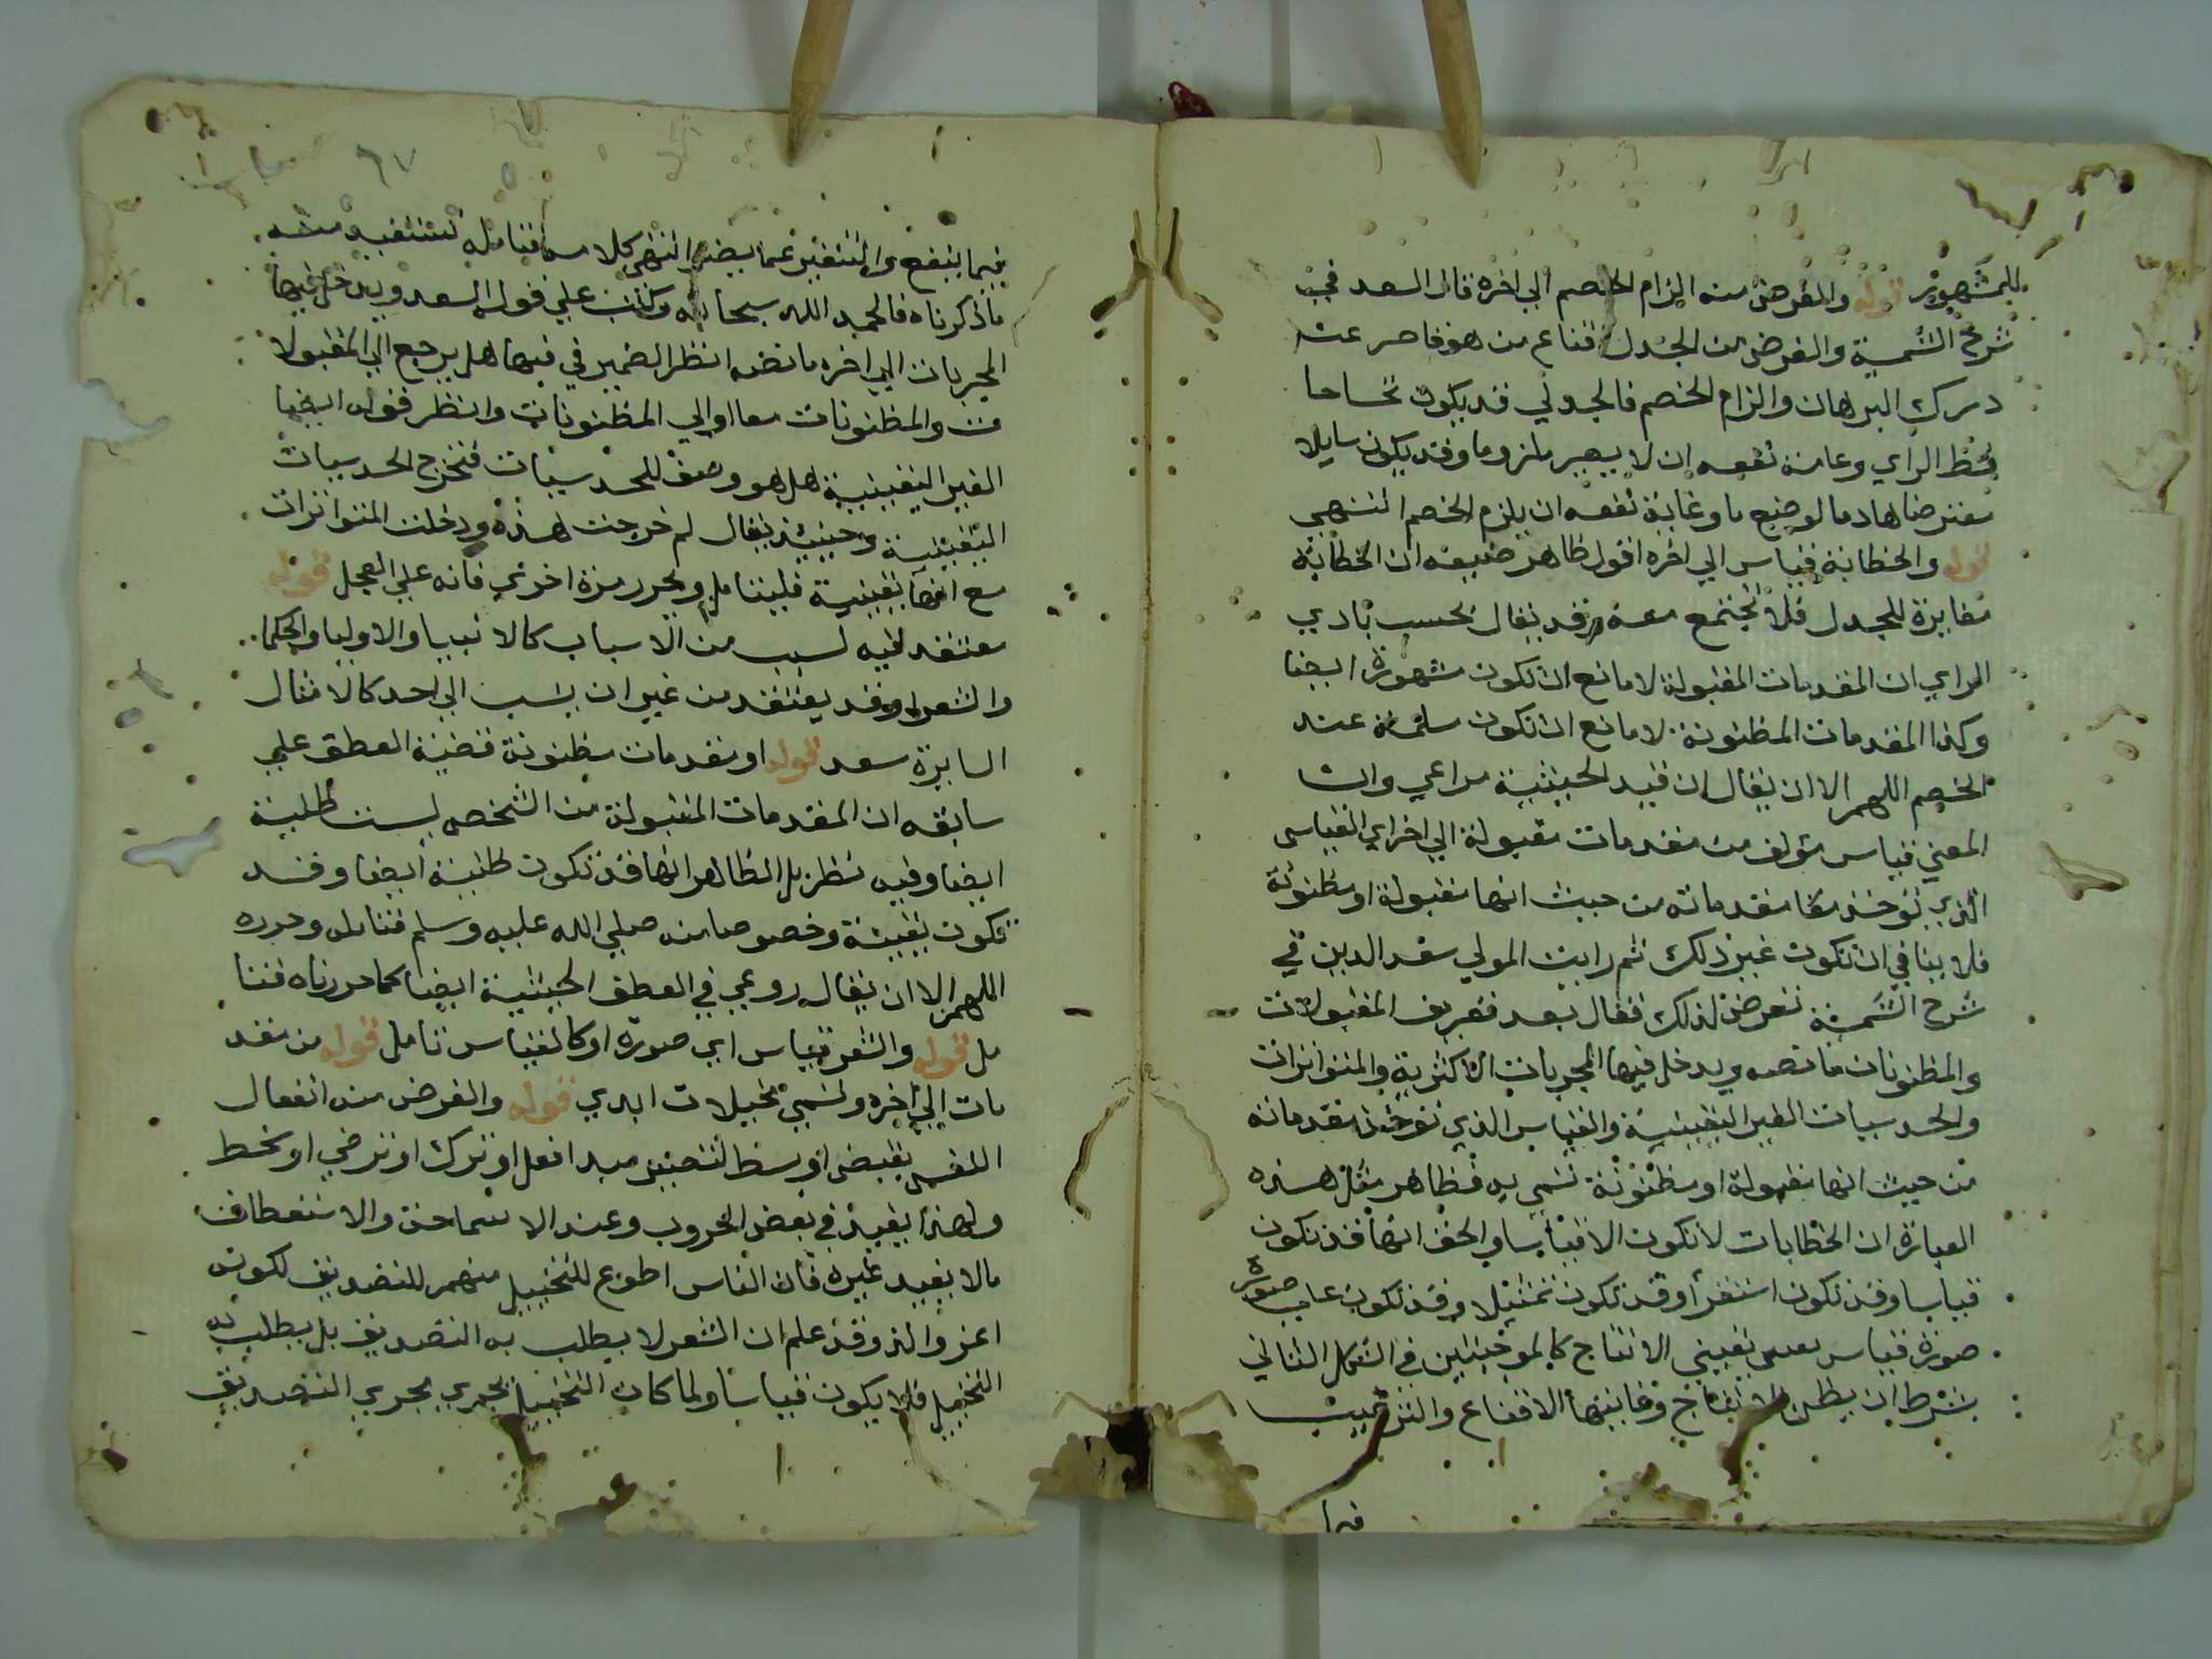 للمشهور قوله والغرض منه الزام الخصم الي اخره قال السعد في
شرح الشمسية والغرض من الجدل اقناع من هو قاصر عن
درك البرهان والزام الخصم فالجدلي قد يكون
يحفظ الراي وغاية نفعه ان لا يصير ملزوما وقد يكون سايلا
معترضا هادما لوضع ما وغاية نفعه ان يلزم الخصم انتهي
قوله والخطابة قياس الي اخره اقول ظاهر صنيعه ان الخطابة
مغايرة للجدل فلا تجتمع معه وقد يقال بحسب بادي
الراي ان المقدمات المقبولة لا مانع ان تكون مشهورة ايضا
وكذا المقدمات المظنونة لا مانع ان تكون مسلمة عند
الخصم اللهم الا ان يقال ان قيد الحيثية مراعي وان
المعني قياس مولف من مقدمات مقبولة الي اخر اي القياس
الذي توخذ مقدماته من حيث انها مقبولة او مظنونة
فلا ينافي ان تكون غير ذلك ثم رايت المولي سعد الدين في
شرح الشمسية تعرض لذلك فقال بعد تعريف المقبولات
والمظنونات ما نصه ويدخل فيها المجربات الاكثرية والمتواترات
والحدسيات الغير اليقينية والقياس الذي توخذ مقدماته
من حيث انها مقبولة او مظنونة تسمي به فظاهر مثل هذه
العبارة ان الخطابات لا تكون الا قياسا والحق انها قد تكون
قياسا وقد تكون استقرا وقد تكون تمثيلا وقد تكون علي صورة
صورة قياس يقيني الانتاج كالموجبتين في الشكل الثاني
بشرط ان يظن الانتاج وغايتها الاقناع والترغيب
فيما
٦٧
فيما ينفع والتنفير عما يضر انتهي كلامه فتامله لتستفيد منه
ما ذكرناه فالحمد الله سبحانه وكتب علي قول السعد ويدخل فيها
المجربات الي اخره ما نصه انظر الضمير في فيها هل يرجع الي المقبولا
ت والمظنونات معا او الي المظنونات وانظر قوله ايضا
الغير اليقينية هل هو وصف للحدسيات فتخرج الحدسيات
اليقينية وحينيذ يقال لم خرجت هذه ودخلت المتواترات
مع انها يقينية فليتامل ويحرر مرة اخري فانه علي العجل قوله
معتقد فيه لسبب من الاسباب كالانبيا والاوليا والحكما
والشعرا وقد يعتقد من غير ان ينسب الي احد كالامثال
السايرة سعد قوله او مقدمات مظنونة قضية العطف علي
سابقه ان المقدمات المقبولة من الشخص ليست ظنية
ايضا وفيه نظر بل الظاهر انها قد تكون ظنية ايضا وقد
تكون يقينية وخصوصا منه صلي الله عليه وسلم فتامل وحرره
اللهم الا ان يقال روعي في العطف الحيثية ايضا كما حررناه فتا
مل قوله والشعر قياس اي صورة او كالقياس تامل قوله من مقد
مات الي اخره وتسمي مخيلات ابدي قوله والغرض منه انفعال
النفس بقبض او بسط لتصير مبدا فعل او ترك او ترضي او سخط
ولهذا يفيد في بعض الحروب وعند الاستماحة والاستعطاف
مالا يفيد غيره فان الناس اطوع للتخييل منهم للتصديق لكونه
اعز والذ وقد علم ان الشعر لا يطلب به التصديق بل يطلب به
التخييل فلا يكون قياسا ولما كان التخييل يجري مجري التصديق